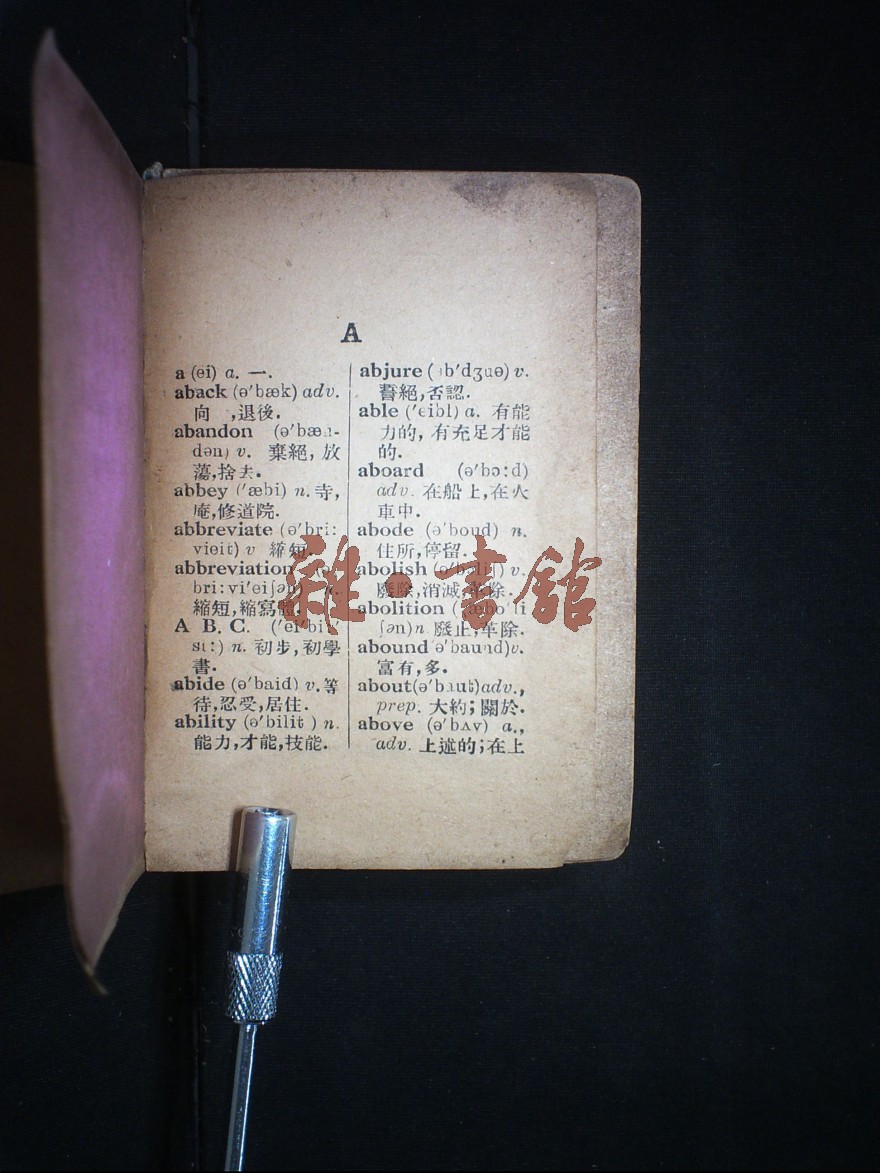 A
a (ei) a. 一.
aback (ə'bæk) adv.
向 ,退後.
abandon (ə'bæn-
dən) v. 棄絕, 放
蕩,捨去.
abbey ('æbi) n. 寺,
庵,修道院.
abbreviate (ə'bri:
vieit) v 縮短.
abbreviation
bri:vi'eiʃən)
縮短,縮寫體.
A B. C. ('ei'bi:'
si:) n. 初步,初學
書.
abide (ə'baid) v. 等
待,忍受,居住.
ability (ə'bilit ) n.
能力,才能,技能.
abjure ( b'dʒuə) v.
誓絕,否認.
able ('eibl) a. 有能
力的, 有充足才能
的.
aboard (ə'bɔ:d)
adv. 在船上,在火
車中.
abode (ə'boud) n.
住所,停留.
abolish (ə'bɔliʃ) v.
廢除,消滅,革除.
abolition
ʃən) n. 廢止,革除.
abound ə'baund) v.
富有,多.
about (ə'baut) adv.,
prep. 大約;關於.
above (ə'bʌv) a.,
adv. 上述的;在上
雜·書館